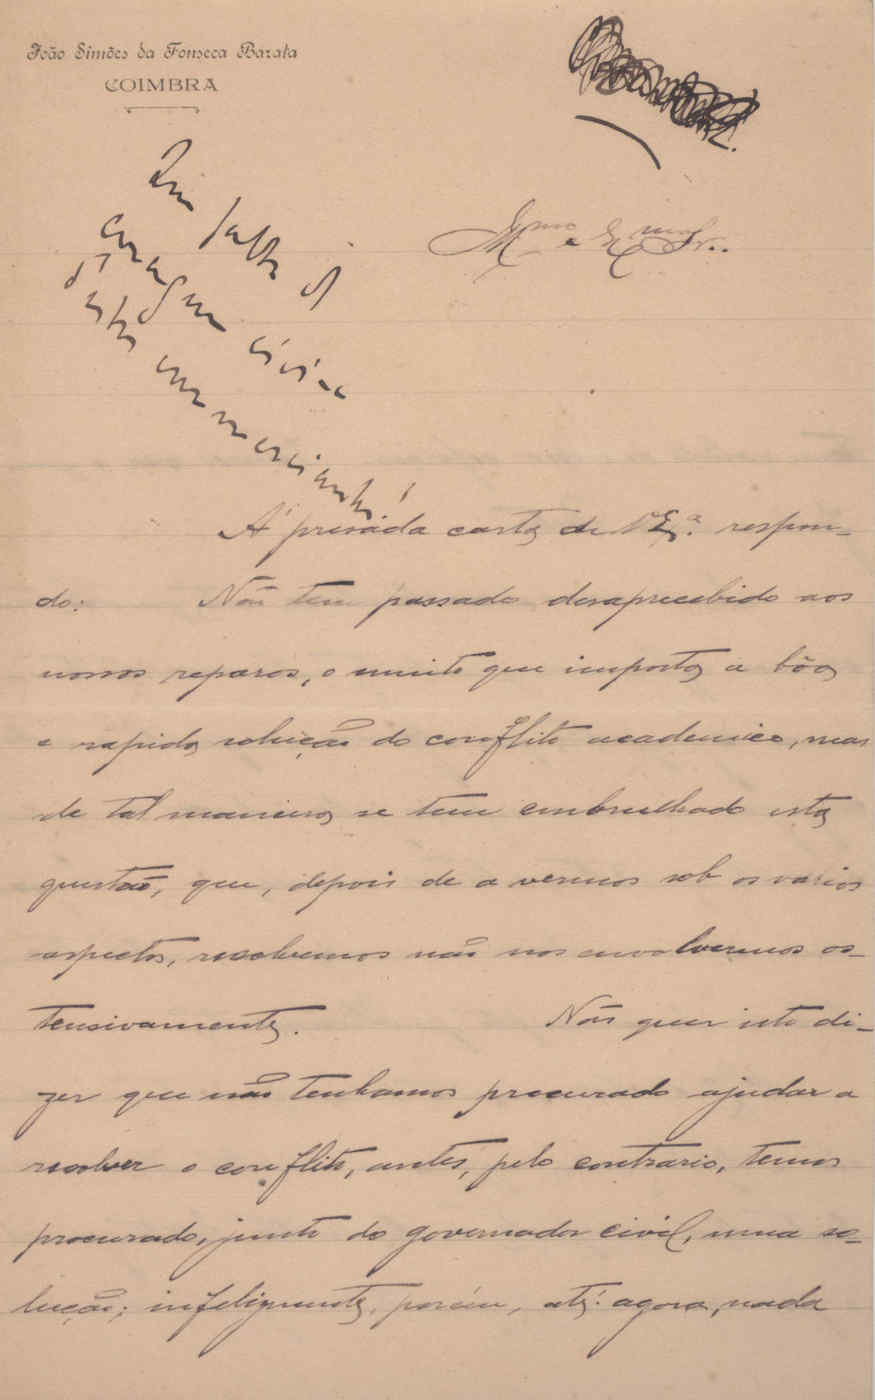 João Simões da Fonseca Barata
COIMBRA
Que falta de
coragem civica
d'estes commerciantes!
Illmo e Exmo Sr..
Á presada carta de V. Exª. respon-
do: Não tem passado desaprecebido aos
nossos reparos, o muito que importa a bôa
e rapida solução do conflito academico, mas
de tal maneira se tem embrulhado esta
questão, que, depois de a vermos sob os varios
aspectos, resolvemos não nos envolvermos os-
tensivamente. Não quer isto di-
zer que não tenhamos procurado ajudar a
resolver o conflito, antes, pelo contrario, temos
procurado, junto do governador civil, uma so-
lução; infelizmente, porém, até agora, nada